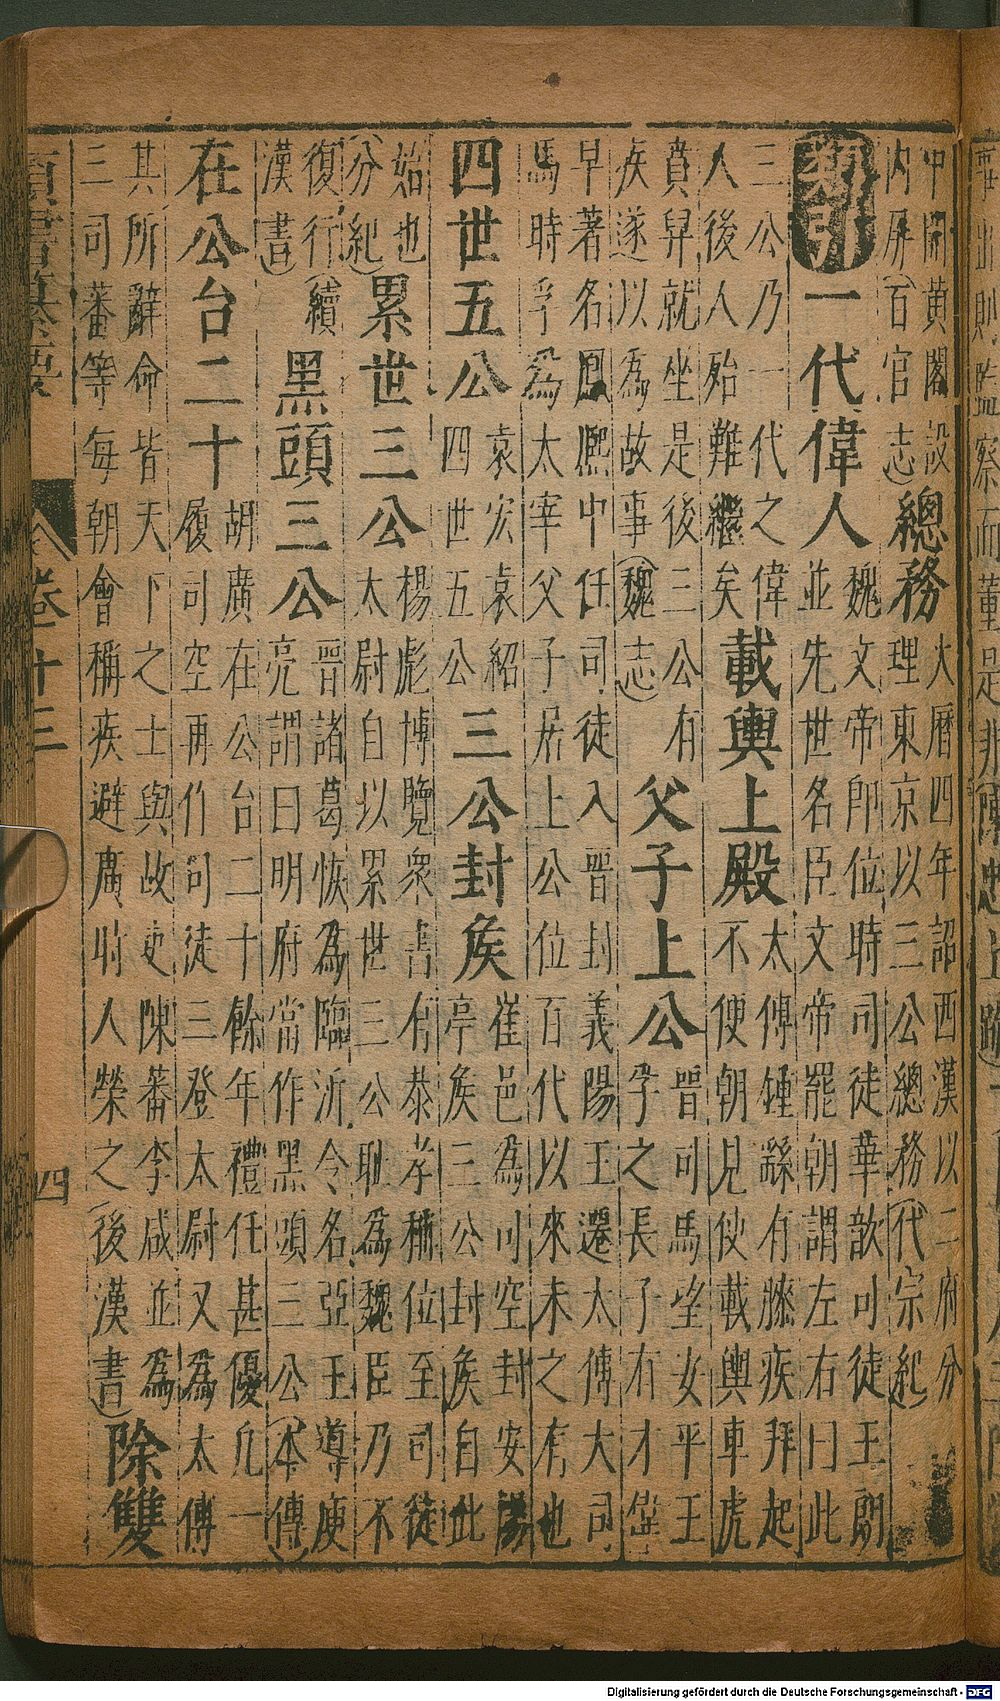 中開黃閣設
內屏(百官志)
總務
大曆四年詔西漢以二府分
理東京以三公總務(代宗紀)
類引
一代偉人
魏文帝即位時司徒華歆司徒王朗
並先世名臣文帝罷朝謂左右曰此
三公乃一代之偉
人後人殆難繼矣
載輿上殿
太傅鍾繇有膝疾拜起
不便朝見使載輿車虎
賁舁就坐是後三公有
疾遂以為故事(魏志)
父子上公
晉司馬望女平王
孚之長子有才偉
早著名鳳熈中任司徒入晉封義陽王遷太傅大司
馬時孚為太宰父子居上公位百代以來未之有也
四世五公
袁宏袁紹
四世五公
三公封矦
崔邑為司空封安陽
亭矦三公封矦自此
始也
(分紀)
累世三公
楊彪博覽衆書有恭孝稱位至司徒
太尉自以累世三公恥為魏臣乃不
復行(續
漢書)
黑頭三公
晉諸葛恢為臨沂令名亞王導庾
亮謂曰明府當作黑頭三公(本傳)
在公台二十
胡廣在公台二十餘年禮任甚優凡一
履司空再作司徒三登太尉又為太傅
其所辭命皆天下之士與故吏陳蕃李咸並為
三司蕃等每朝會稱疾避廣時人榮之(後漢書)
除雙
類書纂要 卷十三 四
Digitalisierung gefördert durch die Deutsche Forschungsgemeinschaft - DFG